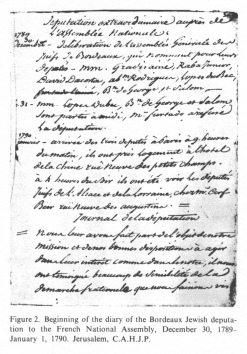 Députation extraordinaire auprès de
l'Assemblée Nationale
1789
30
Délibération de l'assemblée Générale de
Juifs à Bordeaux, qui nomment pour leurs
Députés - mm. Gradis aîné, Raba Junior,
David Dacosta, ab.e Rodrigues, Lopes du Bec,
furtado, Bs. de George et Salom
31 - mm Lopes Dubec, Bs. de George et Salom
sont partis à midi, m. furtado a refusé
la députation.
1790
arrivée des trois députés à Paris à 9 heures
du matin, ils ont pris logement à l'hotel
de la Chine rue Neuve des petits champs.
à 4 heures du soir ils ont été voir les députés
Juifs de l'Alsace et de la Lorraine, chez mr. Cerf
Beer rue Neuve des augustins
Journal de la députation
Nous leur avons fait part de l'objet de notre
mission et de nos bonnes dispositions à agir
dans leur intérêt comme dans le notre, ils nous
ont témoigné beaucoup de sensibilité de la
démarche fraternelle que nous faisions
Figure 2. Beginning of the diary of the Bordeaux Jewish deputa-
tion to the French National Assembly, December 30, 1789–
January 1, 1790. Jerusalem, C.A.H.J.P.